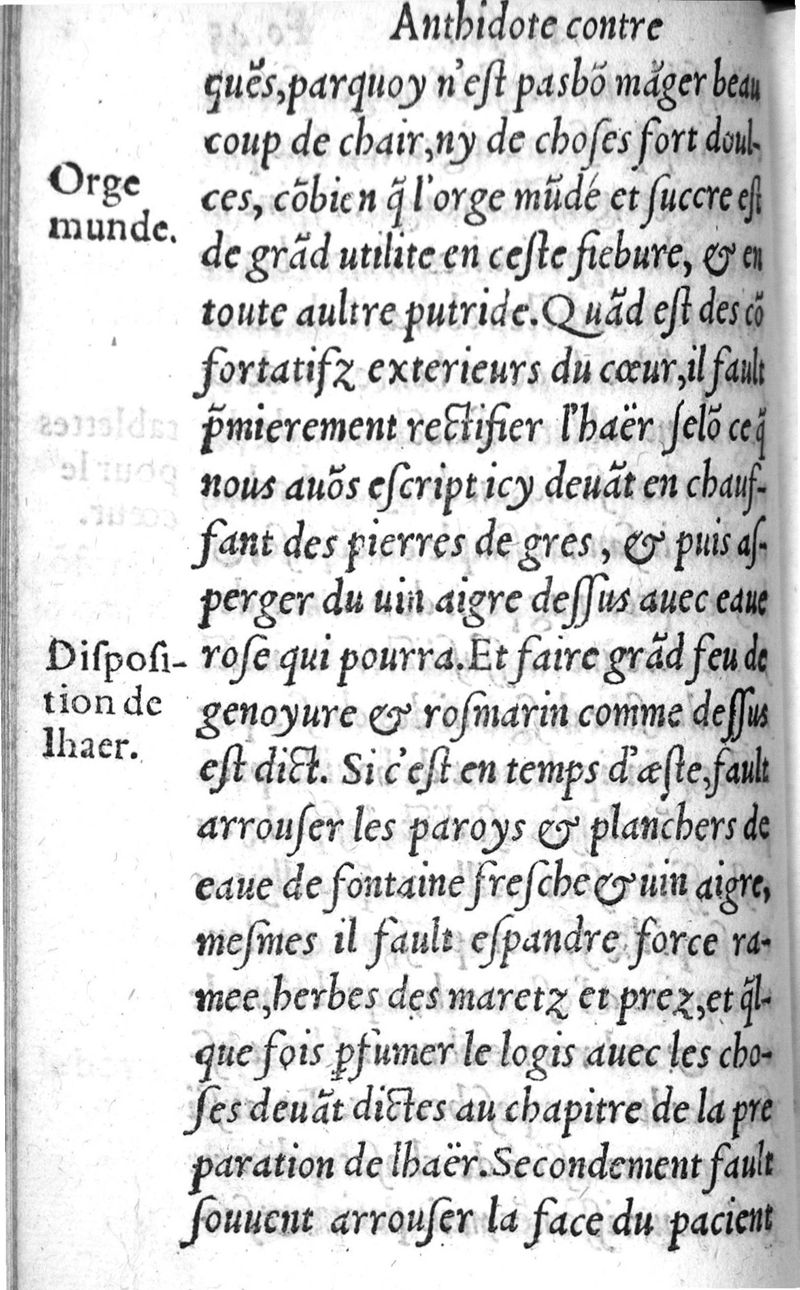 Anthidote contre
ques̃,parquoy n'eſt pas bõ mãger beau
coup de chair,ny de choſes fort doul-
Orge
munde.
ces, cõbien q̃ l'orge mũdé et ſuccre eſt
de grãd utilite en ceſte fiebure, & en
toute aultre putride.Quãd eſt des cõ
fortatifz exterieurs du cœur,il fault
p̃mierement rectifier l'haër ſelõ ce q̃
nous auõs eſcript icy deuãt en chauf-
fant des pierres de gres, & puis aſ-
perger du uin aigre deſſus auec eaue
Diſpoſi-
tion de
lhaer.
roſe qui pourra.Et faire grãd feu de
genoyure & roſmarin comme deſſus
eſt dict. Si c'eſt en temps d'æſte,fault
arrouſer les paroys & planchers de
eaue de fontaine freſche & uin aigre,
meſmes il fault eſpandre force ra-
mee,herbes des maretz et prez,et q̃l-
que fois ꝑfumer le logis auec les cho-
ſes deuãt dictes au chapitre de la pre
paration de lhaër.Secondement fault
ſouuent arrouſer la face du pacient